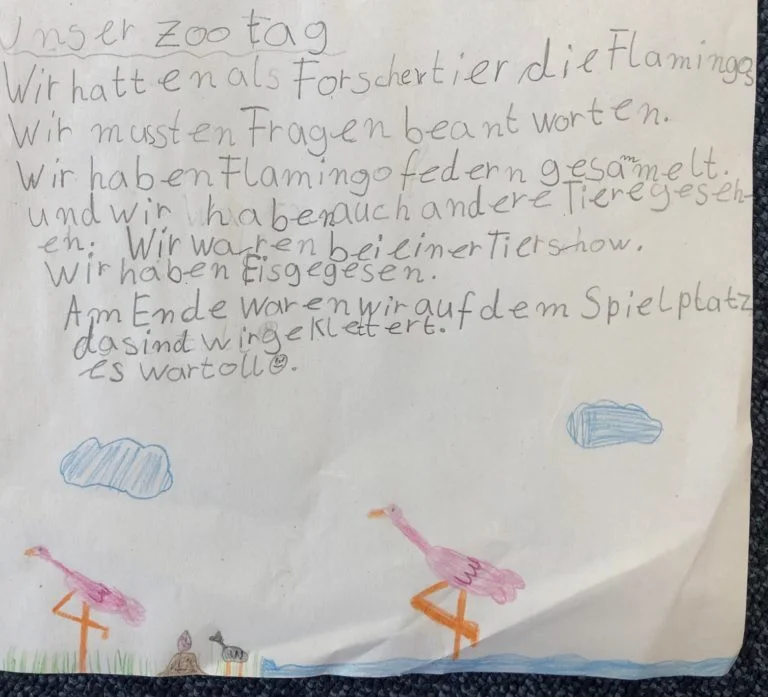 Unser Zootag
Wir hatten als Forschertier die Flamingos
Wir mussten Fragen beantworten.
Wir haben Flamingofedern gesammelt.
und wir haben auch andere Tiere geseh-
en. Wir waren bei einer Tiershow.
Wir haben Eisgegesen.
Am Ende waren wir auf dem Spielplatz
da sind wir geklettert.
es war toll☺.